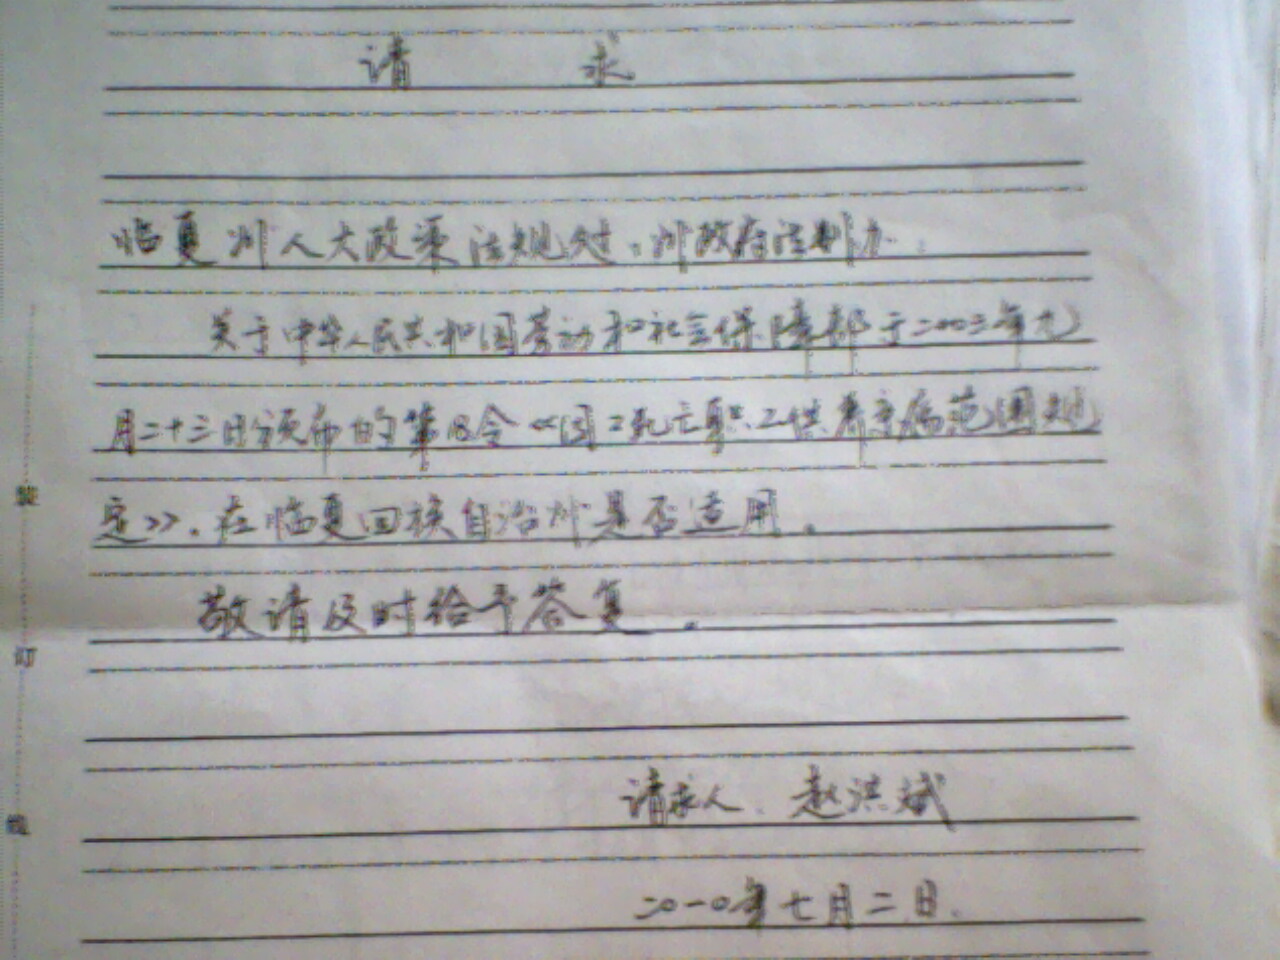 请 求
临夏州人大政策法规处、州政府法制办：
关于中华人民共和国劳动和社会保障部于二00三年九
月二十三日颁布的第18令《因工死亡职工供养亲属范围规
定》、在临夏回族自治州是否适用。
敬请及时给予答复。
请求人、赵洪斌
二0一0年七月二日.
装
订
线